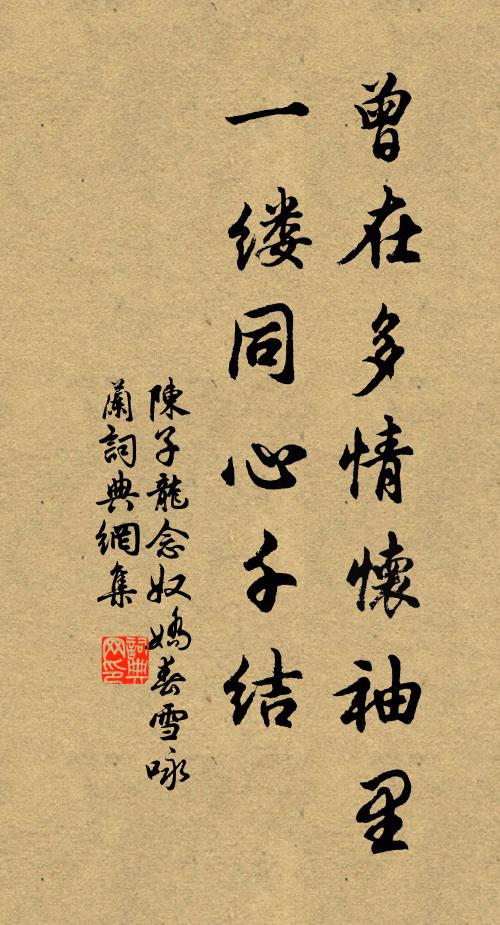 曾在多情懷袖里
一缕同心千结
陳子龍念奴嬌春雪咏
蘭詞典網集
詞典网印